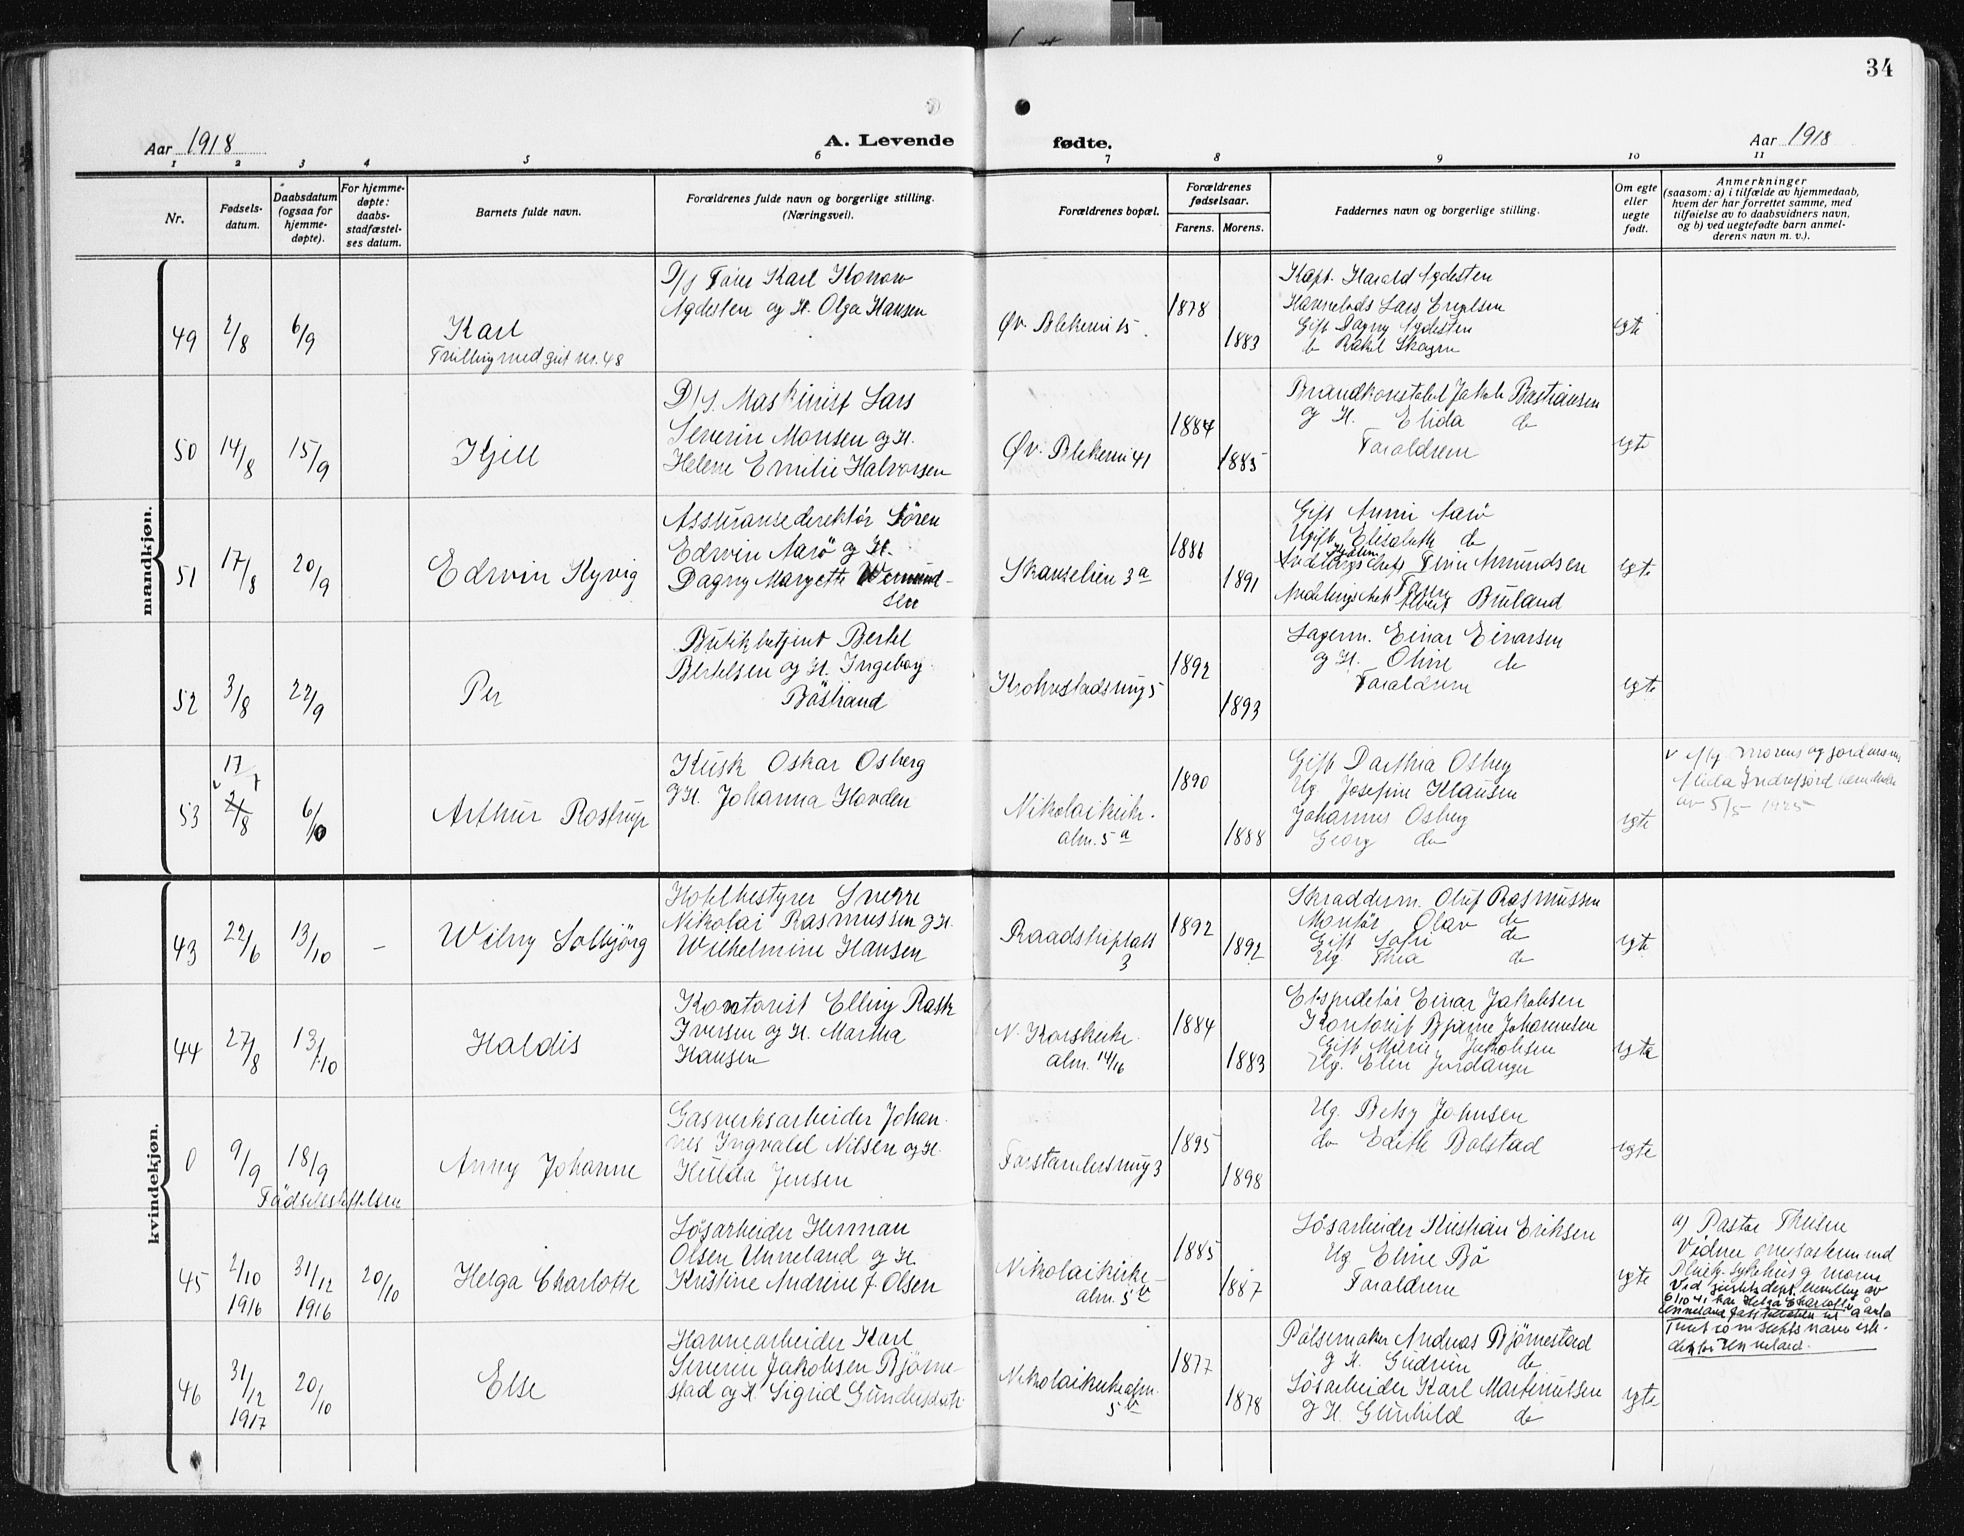 34
Aar 1918
A. Levende
fødte.
Aar 1918
1 2 3 4 5 6 7 8 9 10 11
Nr.
Fødsels-
datum.
Daabsdatum
(ogsaa for
hjemme-
døpte).
For hjemme-
døpte:
daabs-
stadfæstel-
ses datum.
Barnets fulde navn.
Forældrenes fulde navn og borgerlige stilling.
(Næringsvei).
Forældrenes bopæl.
Forældrenes
fødselsaar.
Farens. Morens.
Faddernes navn og borgerlige stilling.
Om egte
eller
uegte
født.
Anmerkninger
(saasom: a) i tilfælde av hjemmedaab,
hvem der har forrettet samme, med
tilføielse av to daabsvidners navn,
og b) ved uegtefødte barn anmel-
derens navn m. v.).
mandkjøn.
49
2/8
6/9
Karl
Tvilling med gut nr. 48
Karl Konow
Nydesten og H. Olga Hansen
Øv. Blekevei 15
1878
1883
Kapt. Harald Nydesten
Lars Engelsen
Gift Dagny Nydesten
do Rakel
egte
50
14/8
15/9
Kjell
D/S. Maskinist Lars
Severin Monsen og H.
Helene Emilie Halvorsen
Øv. Blekevei 41
1884
1885
Brandkonstabel Jakob Bastiansen
og H. Elida do
Forældrene
egte
51
17/8
20/9
Edwin Kyvig
Assuransedirektør Søren
Edwin Aarö og H.
Dagny Margethe Wernund-
sen
Skanselien 3a
1886
1891
Gift Anna Aarö
Ugift Elisabeth do
Finn Amundsen
Albert Bruland
egte
52
3/8
22/9
Per
Butikbetjent Bertel
Bertelsen og H. Ingeborg
Böstrand
Krohnstadsmug 5
1892
1893
Lagerm. Einar Einarsen
og H. Oline do
Forældrene
egte
53
17/7
2/8
6/10
Arthur Rostrup
Kusk Oskar Osberg
og H. Johanna Hovden
Nikolaikirke-
alm. 5a
1890
1888
Gift Darthia Osberg
Ug. Josefine Klausen
Johannes Osberg
Georg do
egte
av 5/5 1925
kvindekjøn.
43
22/6
13/10
-
Wilny Solbjörg
Hotelbestyrer Sverre
Nikolai Rasmussen og H.
Wilhelmine Hansen
Raadstuplass
3
1892
1892
Skrædderm. Oluf Rasmussen
Montör Olav do
Gift Sofie do
Ug. Thea do
egte
44
27/8
13/10
Haldis
Kontorist Elling Rask
Iversen og H. Martha
Hansen
N. Korskirke-
alm. 14/16
1884
1883
Ekspeditör Einar Jakobsen
Kontorist Bjarne Johannesen
Gift Marie Jakobsen
Ug. Elen Jordanger
egte
0
9/9
18/9
Födselsstiftelsen
Anny Johanne
Gasverksarbeider Johan-
nes Ingvald Nilsen og H.
Hulda Jensen
Forstandersmug 3
1895
1898
Ug. Betsy Johnsen
do Edith Bolstad
egte
45
2/10
1916
31/12
1916
20/10
Helga Charlotte
Løsarbeider Herman
Olsen Unneland og H.
Kristine Andrine f. Olsen
Nikolaikirke-
alm. 5b
1885
1887
Løsarbeider Kristian Eriksen
Ug. Eline Bö
Forældrene
egte
a) Pastor Thisen
Vidner
sykehus og moren
Ved justitsdept. bevilling av
6/10 41 har Helga Charlotte
Unneland fått tillatelse til å anta
som slektsnavn iste-
detfor Unneland.
46
31/12
1917
20/10
Else
Havnearbeider Karl
Severin Jakobsen Bjørne-
stad og H. Sigrid Gundersdatr
Nikolaikirkealm.
5b
1877
1878
Pølsemaker Andreas Bjørnestad
og H. Gudrun do
Løsarbeider Karl Martinulsen
og H. Gunhild do
egte